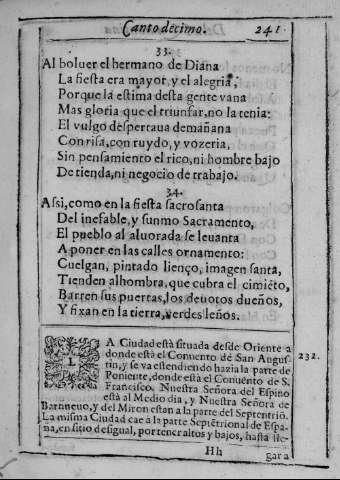 Canto decimo. 241
33.
Al boluer el hermano de Diana
La fiesta era mayor, y el alegria,
Porque la estima desta gente vana
Mas gloria que el triunfar, no la tenia:
El vulgo despertaua demañana
Con risa, con ruydo, y vozeria,
Sin pensamiento el rico, ni hombre bajo
De tienda, ni negocio de trabajo.
34.
Assi, como en la fiesta sacrosanta
Del inefable, y summo Sacramento,
El pueblo al aluorada se leuanta
A poner en las calles ornamento:
Cuelgan, pintado lienço, imagen santa,
Tienden alhombra, que cubra el cimiēto,
Barren sus puertas, los deuotos dueños,
Y fixan en la tierra, verdes leños.
LA Ciudad està situada desde Oriente a
donde està el Conuento de San Augus-
tin, y se va estendiendo hazia la parte de
Poniente, donde està el Conuento de S.
Francisco. Nuestra Señora del Espino
està al Medio dia, y Nuestra Señora de
Barnueuo, y del Miron estan a la parte del Septentriō.
La misma Ciudad cae a la parte Septētrional de Espa-
ña, en sitio desigual, por tener altos y bajos, hasta lle-
232.
Hh gar a